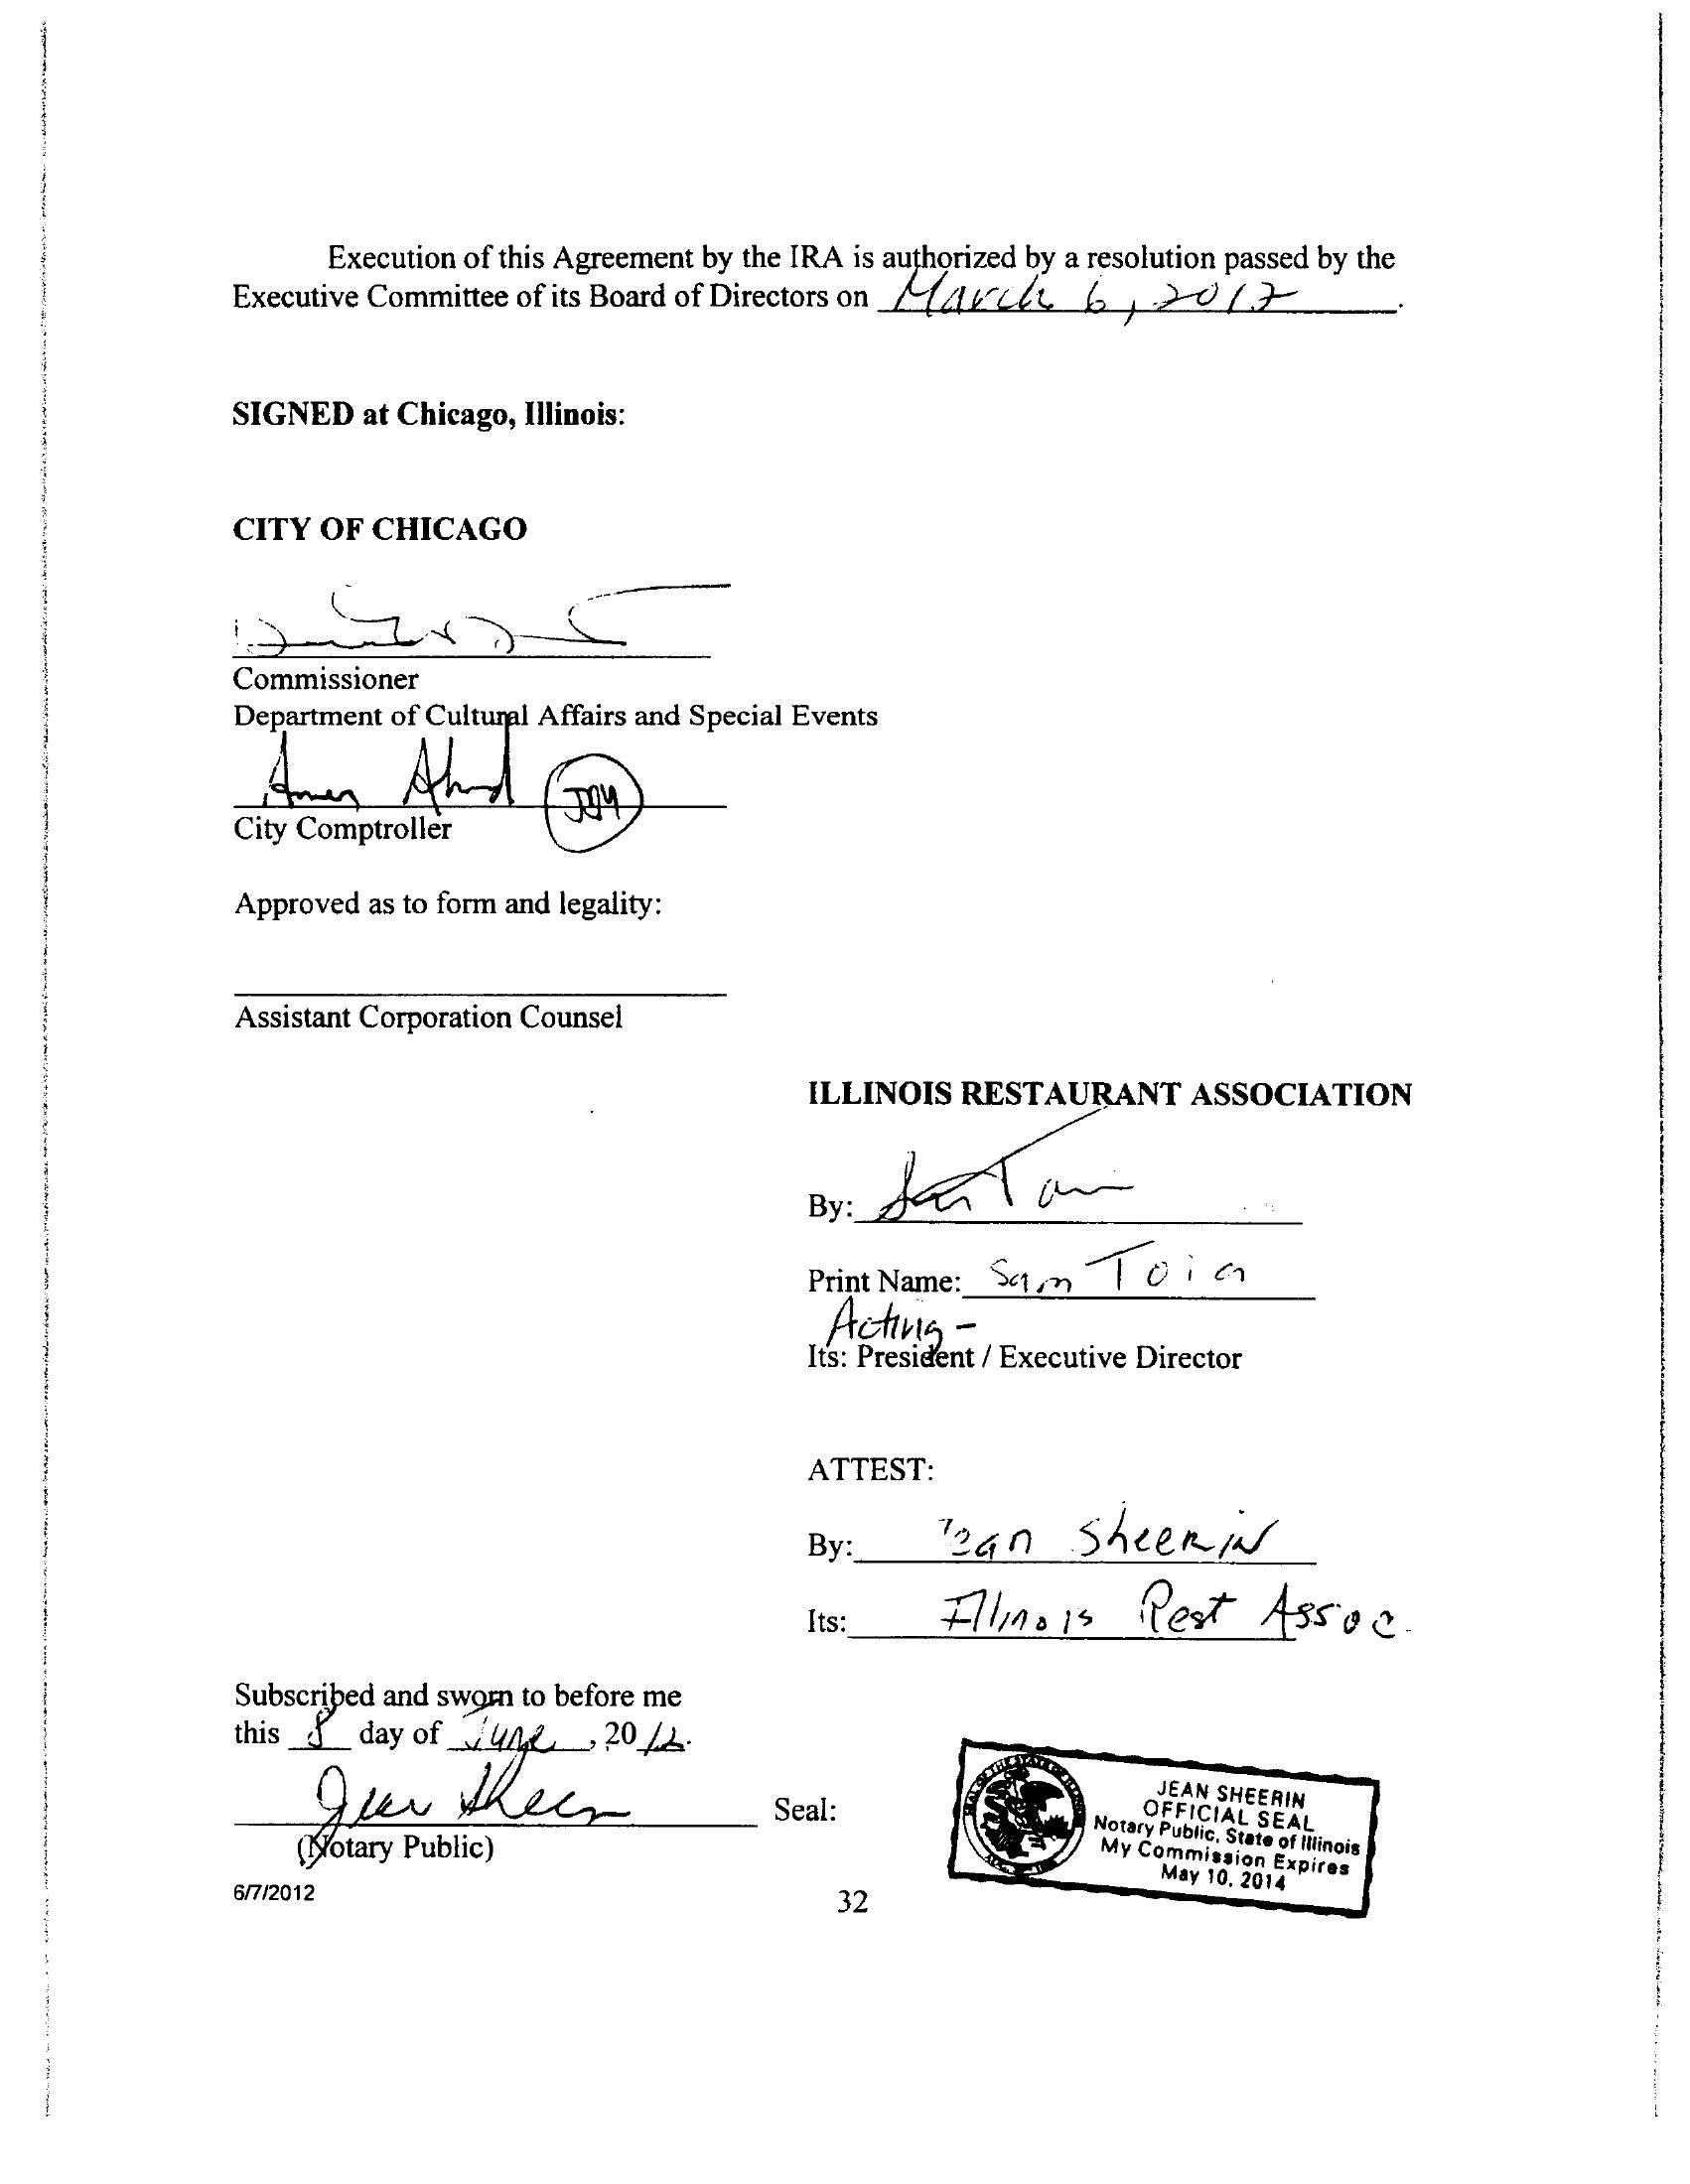 Execution of this Agreement by the IRA is authorized by a resolution passed by the
Executive Committee of its Board of Directors on March 6, 2012.
SIGNED at Chicago, Illinois:
CITY OF CHICAGO
Commissioner
Department of Cultural Affairs and Special Events
Amer Ahmad
City Comptroller
Approved as to form and legality:
Assistant Corporation Counsel
ILLINOIS RESTAURANT ASSOCIATION
By: Sam Toia
Print Name: Sam Toia
Acting -
Its: President / Executive Director
ATTEST:
By: Jean Sheerin
Its: Illinois Rest Assoc.
Subscribed and sworn to before me
this 8 day of June, 2012.
Jean Sheerin
Seal:
(Notary Public)
JEAN SHEERIN
OFFICIAL SEAL
Notary Public, State of Illinois
My Commission Expires
May 10, 2014
6/7/2012
32